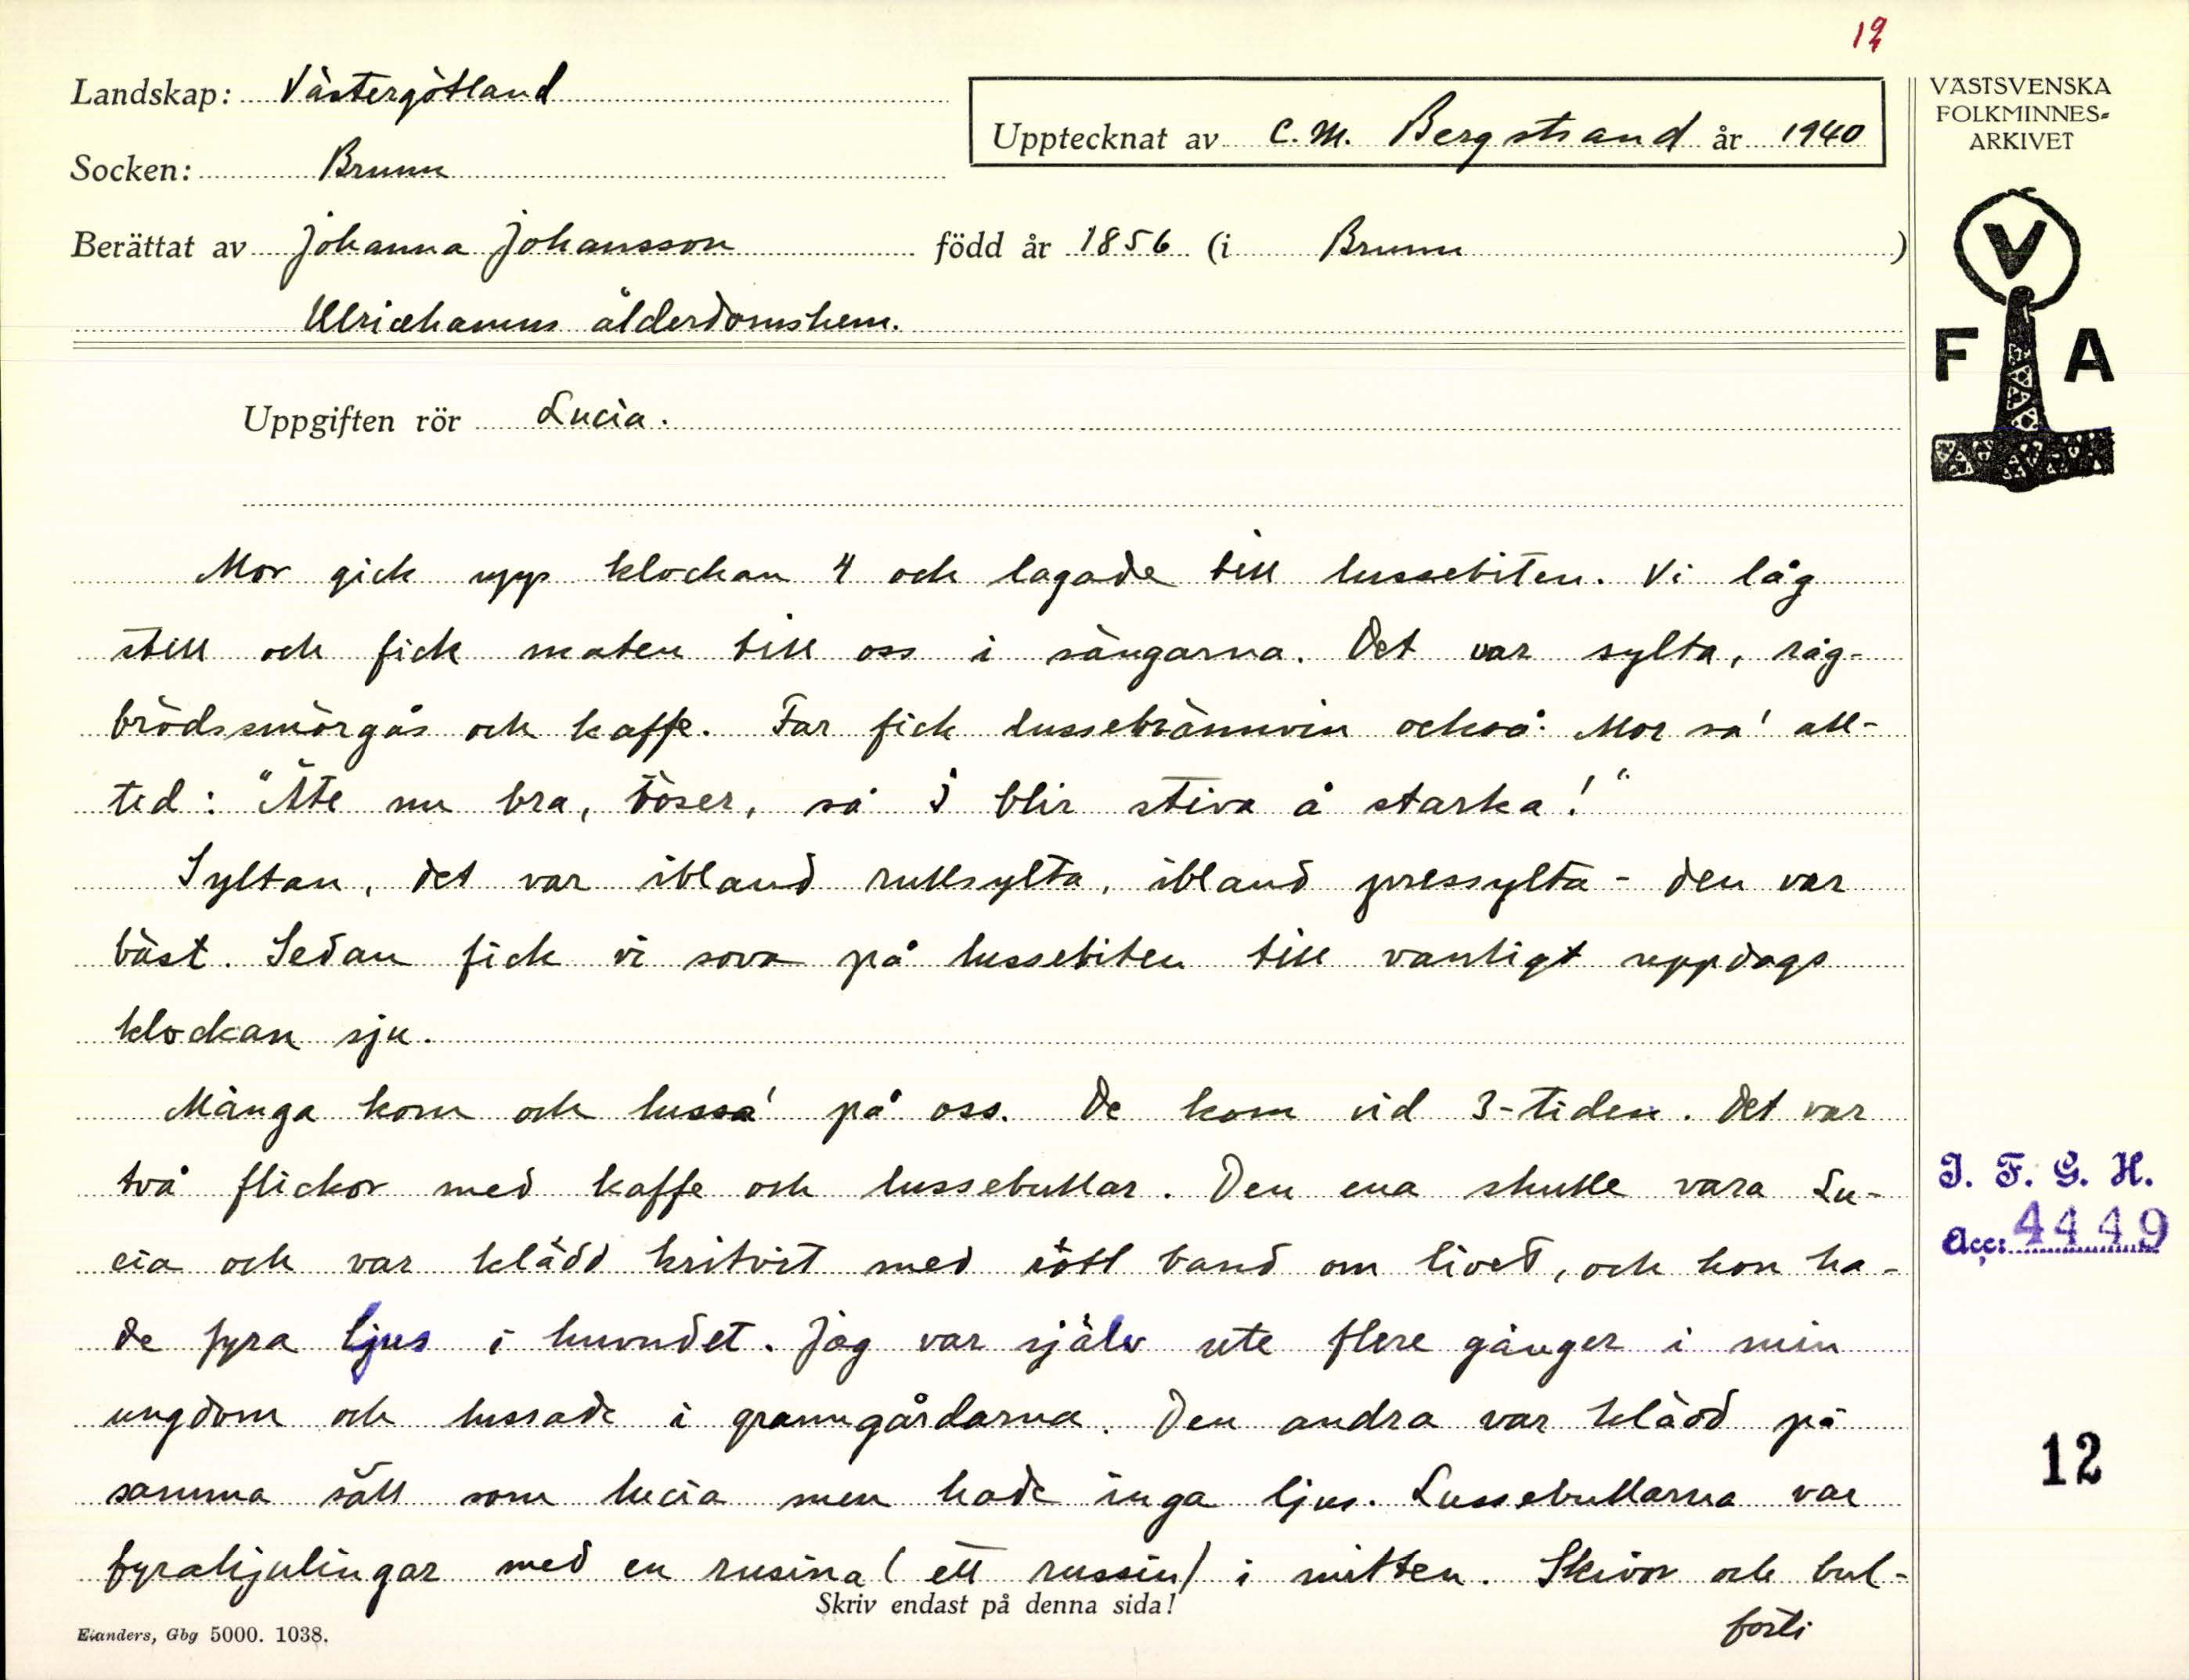 12
Landskap: Västergötland
Upptecknat av C. M. Bergstrand år 1940
VÄSTSVENSKA
FOLKMINNES-
ARKIVET
Socken: Brunn
Berättat av Johanna Johansson född år 1856 (i Brunn)
Ulricehamns ålderdomshem.
V
F A
Uppgiften rör Lucia.
Mor gick upp klockan 4 och lagade till lussebiten. Vi låg
still och fick maten till oss i sängarna. Det var sylta, råg-
brödssmörgås och kaffe. Far fick lussebrännvin också. Mor sa' all-
tid: "Äte nu bra, töser, så I blir stiva å starka!"
Syltan, det var ibland rullsylta, ibland pressylta - den var
bäst. Sedan fick vi sova på lussebiten till vanligt uppdags
klockan sju.
Många kom och lussa' på oss. De kom vid 3-tiden. Det var
två flickor med kaffe och lussebullar. Den ena skulle vara Lu-
cia och var klädd kritvit med rött band om livet, och hon ha-
de fyra ljus i huvudet. Jag var själv ute flere gånger i min
ungdom och lussade i granngårdarna. Den andra var klädd på
samma sätt som lucia men hade inga ljus. Lussebullarna var
fyrahjulingar med en rusina (ett russin) i mitten. Skivor och bul-
Skriv endast på denna sida!
forts
Elanders, Gbg 5000. 1038.
I. F. G. H.
Acc: 4449
12